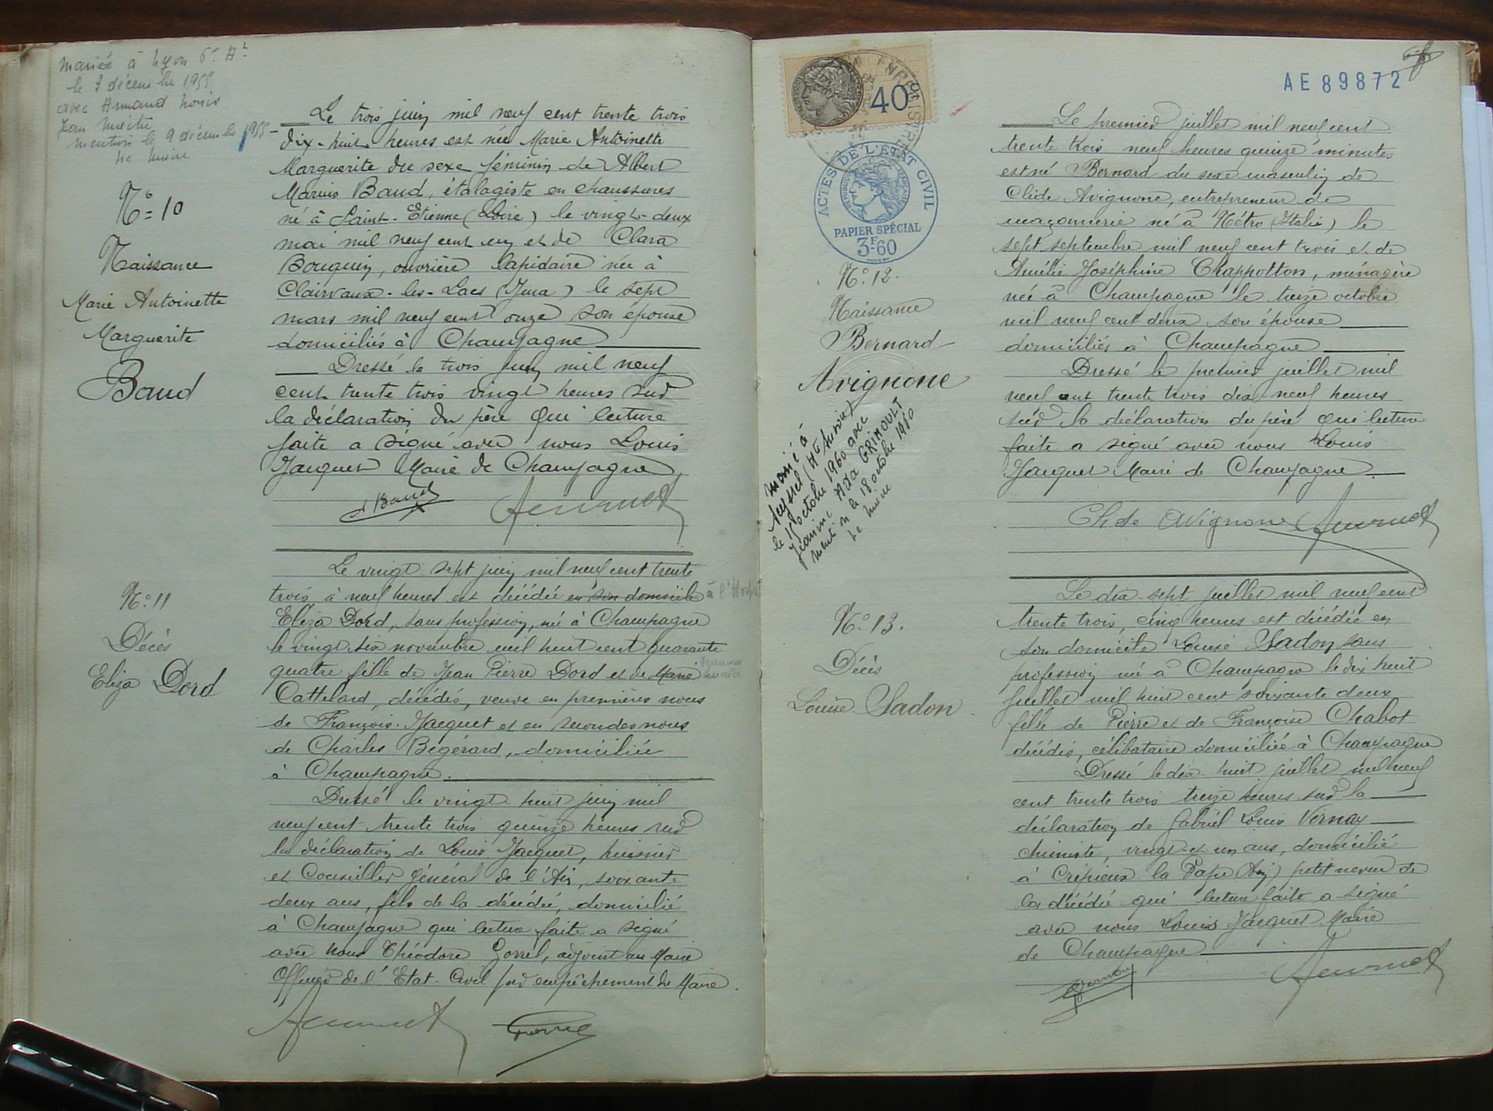 mariée à Lyon 6e Art
le 7 décembre 1955
avec Armand
Jean
mention le 9 décembre 1955
Le maire
N° = 10
Naissance
Marie Antoinette
Marguerite
Baud
Le trois juin mil neuf cent trente trois
dix-huit heures est née Marie Antoinette
Marguerite du sexe féminin de Albert
Marius Baud, étalagiste en chaussures
né à Saint-Etienne (Loire) le vingt-deux
mai mil neuf cent cinq et de Clara
Bouquin, ouvrière lapidaire née à
Clairvaux-les-Lacs (Jura) le sept
mars mil neuf cent onze son épouse
domiciliés à Champagne
Dressé le trois juin mil neuf
cent trente trois vingt heures sur
la déclaration du père qui lecture
faite a signé avec nous Louis
Jacquet Maire de Champagne
Baud
N° 11
Décès
Eliza Dord
Le vingt sept juin mil neuf cent trente
trois à neuf heures est décédée en son domicile à l'
Eliza Dord, sans profession, née à Champagne
le vingt six novembre mil huit cent quarante
quatre fille de Jean Pierre Dord et de Marie
Cattelard, décédés, veuve en premières noces
de François Jacquet et en secondes noces
de Charles Bégérard, domiciliée
à Champagne.
Dressé le vingt huit juin mil
neuf cent trente trois quinze heures sur
la déclaration de Louis Jacquet, huissier
et Conseiller général de l'Ain, soixante
deux ans, fils de la décédée, domicilié
à Champagne qui lecture faite a signé
avec nous Théodore Gorrel, adjoint au Maire
Officier de l'Etat-Civil par empêchement du Maire.
AE89872
40
ACTES DE L'ETAT CIVIL
PAPIER SPÉCIAL
3F60
N° 12.
Naissance
Bernard
Avignone
marié à
Seyssel (Hte Savoie)
le 1er octobre 1960 avec
Jeannine Ada GRIMOULT
mention le 18 octobre 1960
Le maire
Le premier juillet mil neuf cent
trente trois neuf heures quinze minutes
est né Bernard du sexe masculin de
Clide Avignone, entrepreneur de
maçonnerie né à Nétro (Italie) le
sept septembre mil neuf cent trois et de
Amélie Joséphine Chappotton, ménagère
née à Champagne le treize octobre
mil neuf cent deux son épouse
domiciliés à Champagne
Dressé le premier juillet mil
neuf cent trente trois dix neuf heures
sur la déclaration du père qui lecture
faite a signé avec nous Louis
Jacquet Maire de Champagne
Clide Avignone
N° 13.
Décès
Louise Sadon
Le dix sept juillet mil neuf cent
trente trois, cinq heures est décédée en
son domicile Louise Sadon sans
profession née à Champagne le dix huit
juillet mil huit cent soixante deux,
fille de Pierre et de Françoise Chabot
décédés, célibataire domiciliée à Champagne
Dressé le dix huit juillet mil neuf
cent trente trois treize heures sur la
déclaration de Gabriel Louis Vernay
chimiste, vingt et un ans, domicilié
à Crépieux la Pape (Ain) petit neveu de
la décédée qui lecture faite a signé
avec nous Louis Jacquet Maire
de Champagne